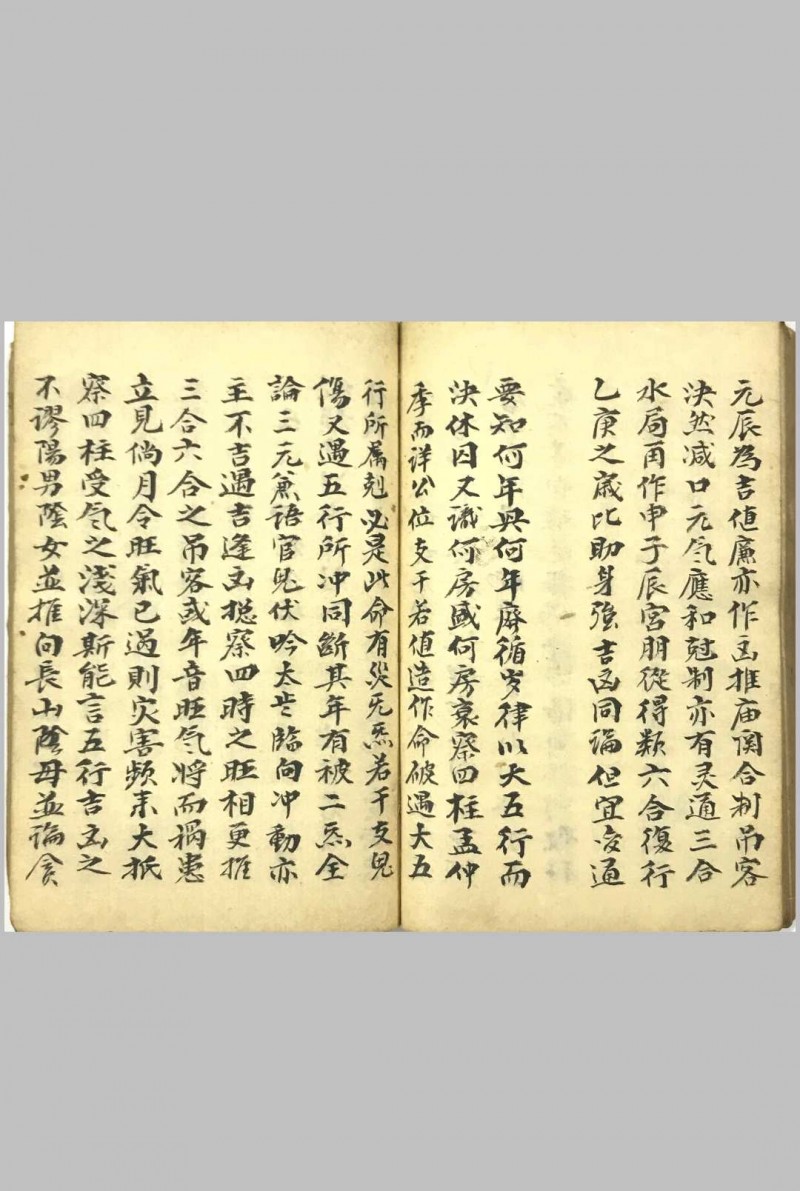 元辰為吉值廉亦作凶推庙関合制吊客
決然减口元気應和尅制亦有灵通三合
水局甬作申子辰宮朋從得类六合復行
乙庚之歲比助身強吉凶同論但宜变通
要知何年興何年廃循岁律以大五行而
決休囚又識何房盛何房衰察四柱孟仲
季而详公位支干若值造作命破遇大五
行所属剋必是此命有災无炁若干支鬼
傷又遇五行所冲同斷其年有被二炁全
論三元兼語官鬼伏吟太岁臨向冲動亦
主不吉過吉逢凶揔察四時之旺相更推
三合六合之吊客或年音旺気将而禍患
立見倘月令旺氣已過則灾害频来大抵
察四柱受気之淺深斯能言五行吉凶之
不謬陽男陰女並推向長山陰母並論貪